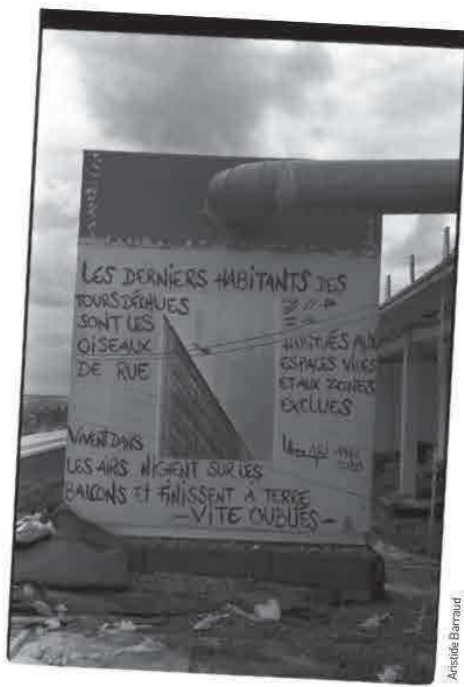 LES DERNIERS HABITANTS DES
TOURS DÉCHUES
SONT LES
OISEAUX
DE RUE
HABITUÉS AUX
ESPACES VIDES
ET AUX ZONES
EXCLUES
VIVENT DANS
LES AIRS NICHENT SUR LES
BALCONS ET FINISSENT A TERRE
—VITE OUBLIÉS—
Aristide Barraud